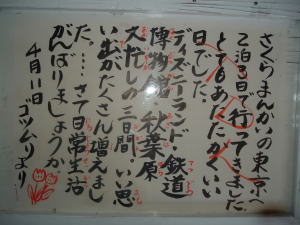 さくらまんかいの東京へ
2泊3日で行ってきました。
とてもあたたかくいい
日でした。
ディズニーランド・鉄道
博物館・秋葉原
大忙しの三日間。いい思
い出がたくさん増えまし
た。…さて日常生活
がんばりましょうか。
4月11日
ゴツムリより